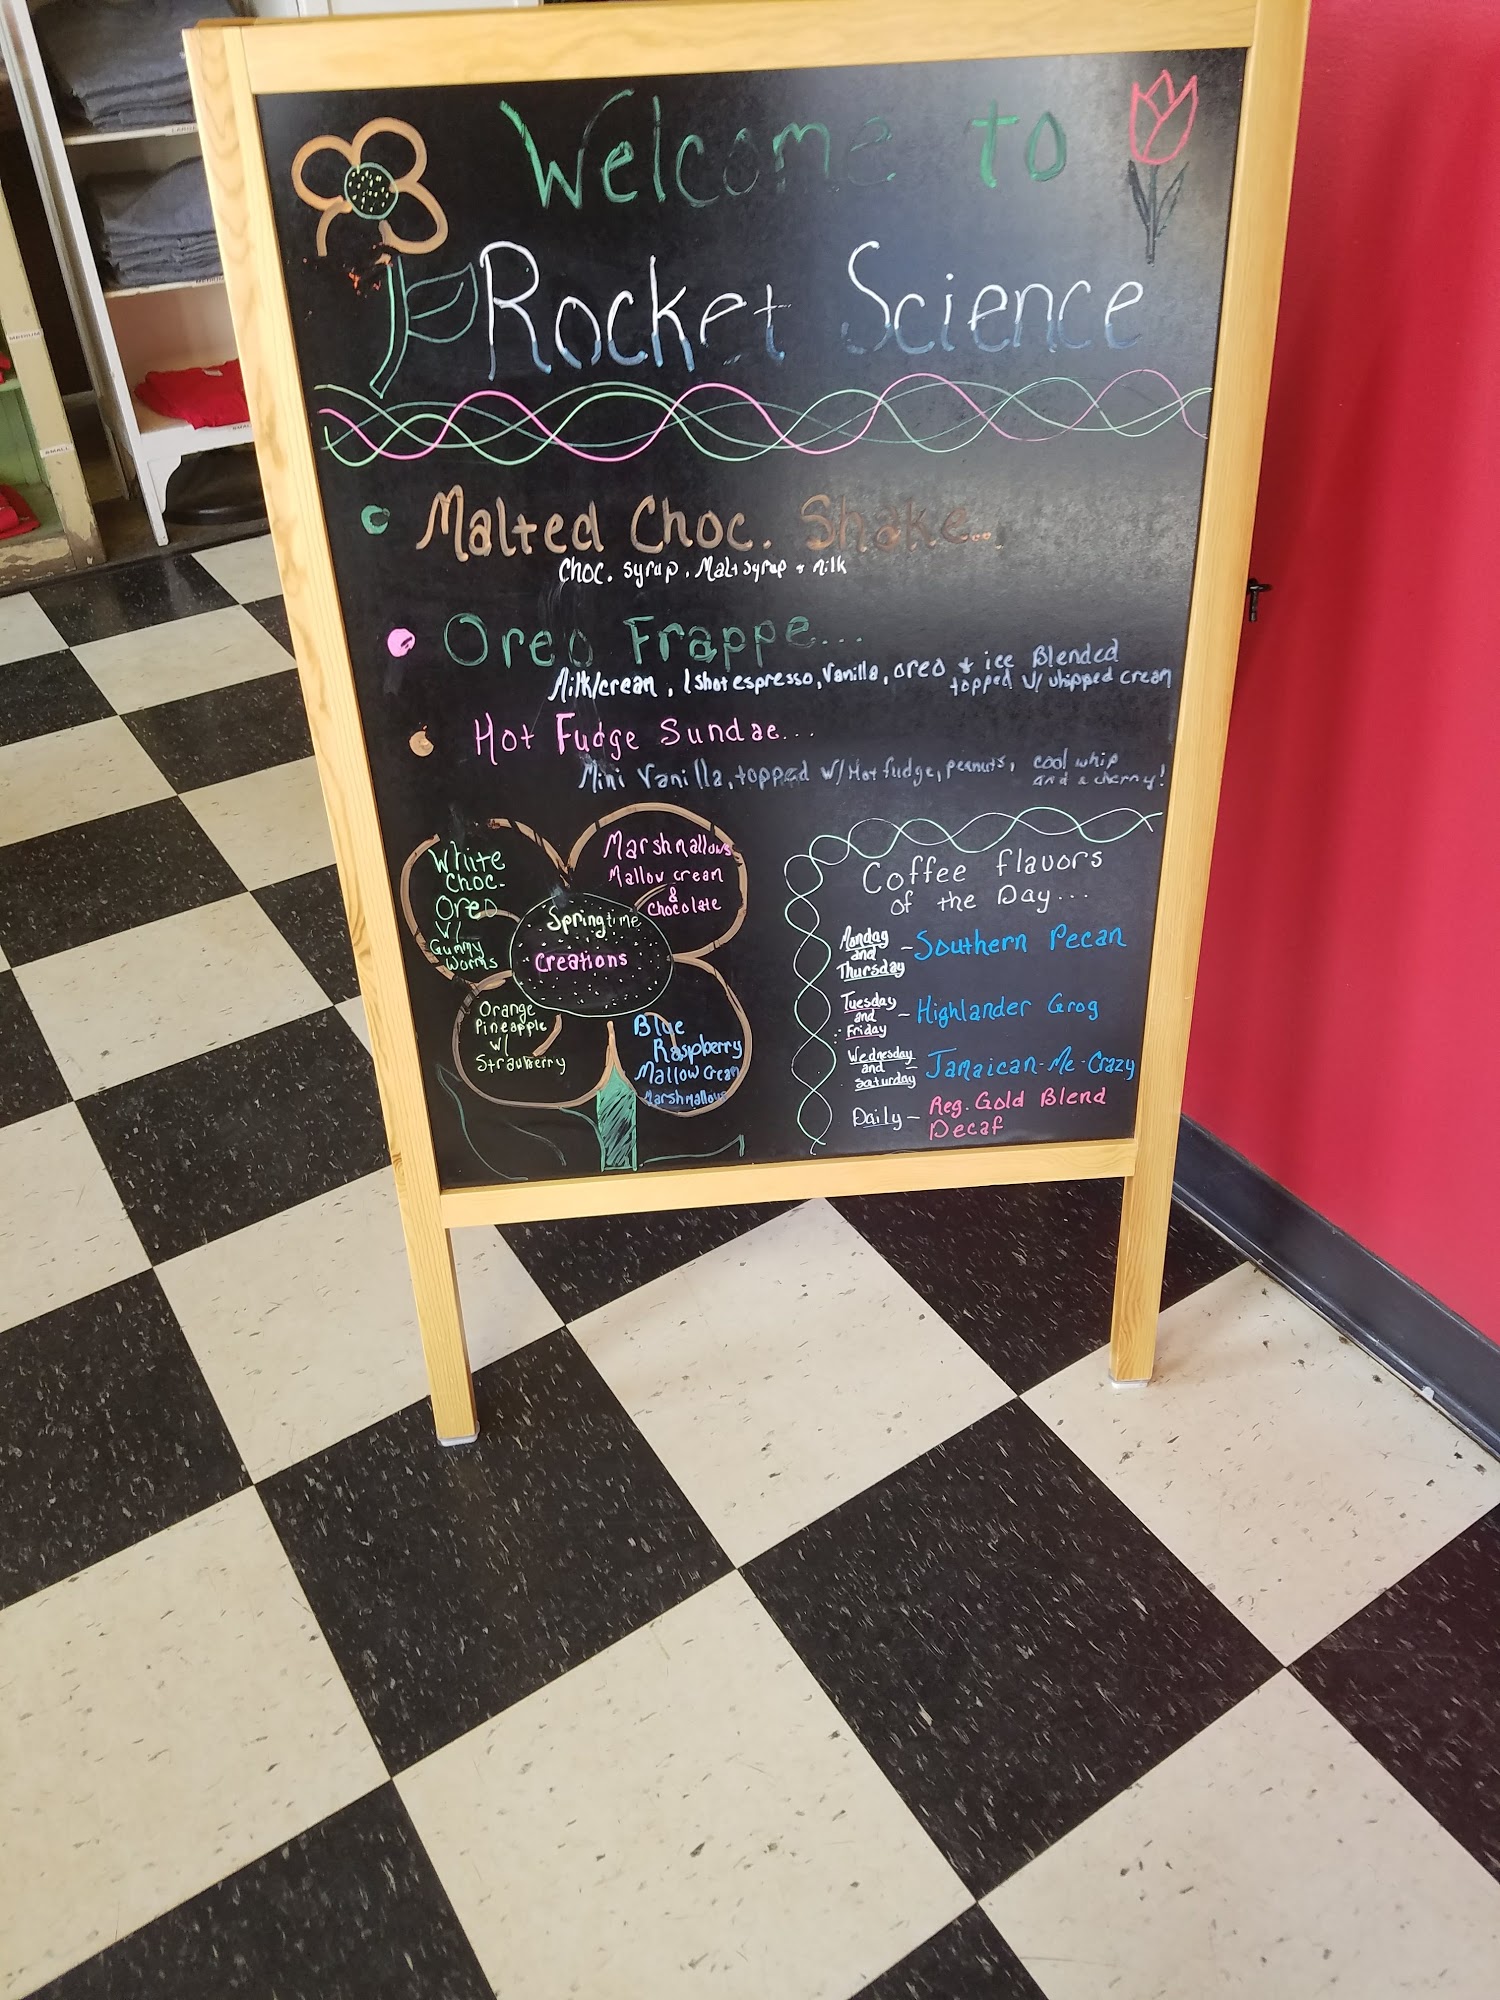 Welcome to
Rocket Science
Malted Choc. Shake...
Choc. syrup, Malt syrup + Milk
Oreo Frappe...
Milk/cream, 1 shot espresso, Vanilla, oreo + ice Blended
topped w/ whipped cream
Hot Fudge Sundae...
Mini Vanilla, topped w/ Hot fudge, peanuts, cool whip
and a cherry!
White
Choc.
Oreo
w/
Gummy
Worms
Marshmallows
Mallow cream
&
Chocolate
Springtime
Creations
Orange
Pineapple
w/
Strawberry
Blue
Raspberry
Mallow Cream
Marshmallows
Coffee flavors
of the Day...
Monday
and
Thursday
- Southern Pecan
Tuesday
and
Friday
- Highlander Grog
Wednesday
and
Saturday
- Jamaican-Me-Crazy
Daily - Reg. Gold Blend
Decaf
MEDIUM
SMALL